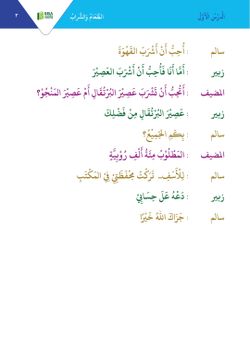 الدَّرْسُ الأَوَّلُ
الطَّعَامُ وَالشَّرَابُ
٣
سالم : أُحِبُّ أَنْ أَشْرَبَ القَهْوَةَ
زبير : أَمَّا أَنَا فَأُحِبُّ أَنْ أَشْرَبَ العَصِيْرَ
المضيف : أَتُحِبُّ أَنْ تَشْرَبَ عَصِيْرَ البُرْتُقَالِ أَمْ عَصِيْرَ المَنْجُوْ؟
زبير : عَصِيْرَ البُرْتُقَالِ مِنْ فَضْلِكَ
سالم : بِكَمِ الجَمِيْعُ؟
المضيف : المَطْلُوْبُ مِئَةُ أَلْفِ رُوْبِيَّةٍ
سالم : لِلْأَسَفِ.. تَرَكْتُ مِحْفَظَتِيْ فِيْ المَكْتَبِ
زبير : دَعْهُ عَلَى حِسَابِيْ
سالم : جَزَاكَ اللهُ خَيْرًا